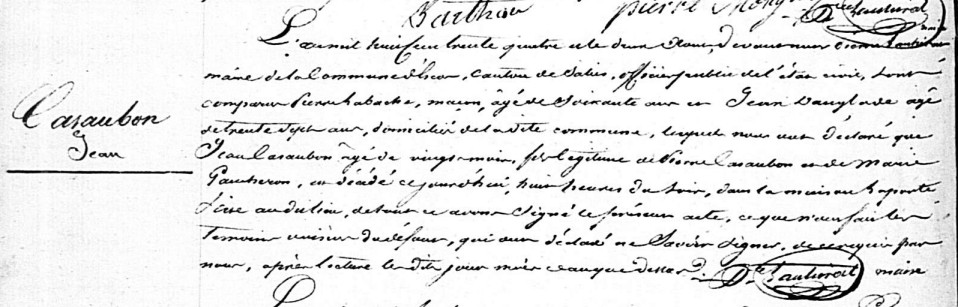 Barthou Pierre
Casaubon
Jean
L'an mil huit cent trente quatre et le deux Aout, devant nous
maire de la Commune d', Canton de Salies, officier public de l'état civil, sont
comparus Pierre Labache, maçon, âgé de Soixante ans et Jean Dauglade agé
de trente Sept ans, domiciliés de la dite commune, lesquels nous ont déclaré que
Jean Casaubon âgé de vingt mois, fils légitime de Pierre Casaubon et de Marie
, est décédé ce jourd'hui, huit heures du Soir, dans la maison Laporte
Sise au dit lieu, de tout ce avons Signé le présent acte, ce que n'ont fait les
Temoins duement, qui ont déclaré ne Savoir Signer, de ce requis par
nous, après lecture les dits jour mois et an que dessus. maire